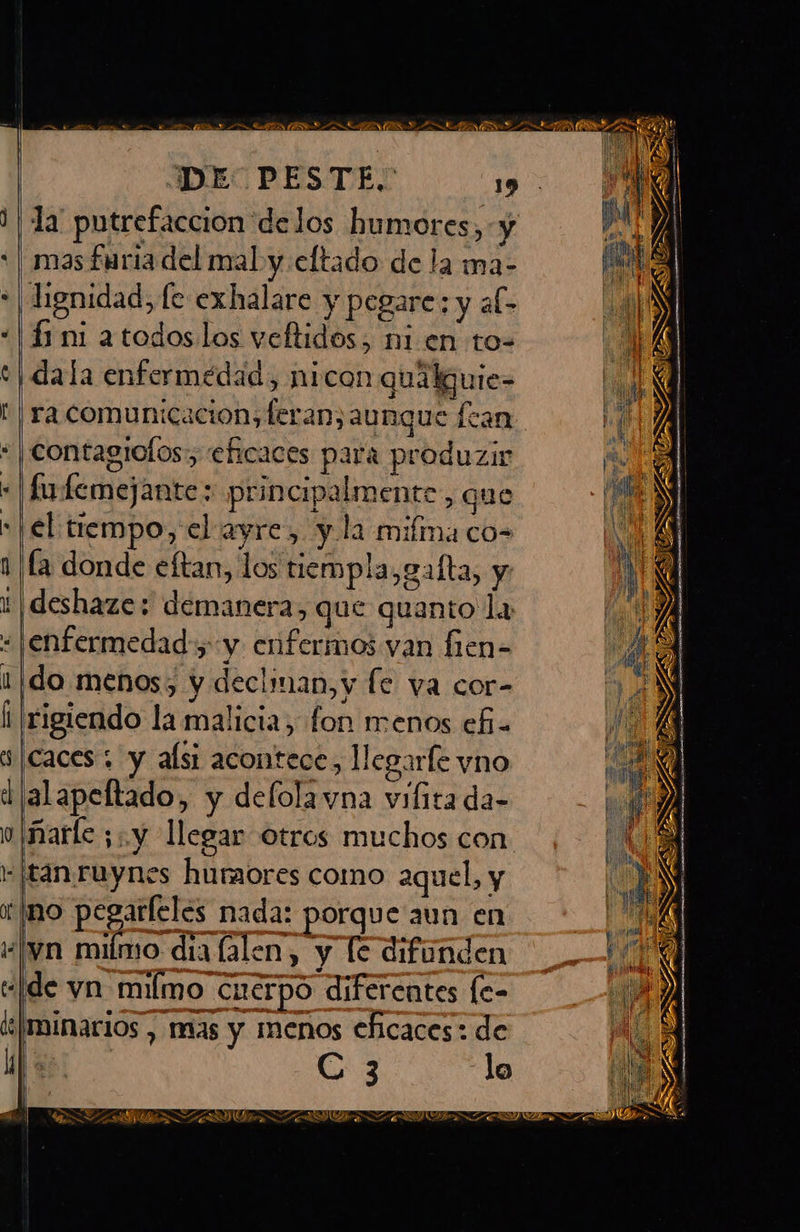 DE PESTE. 19
la putrefaccion delos humores, y
mas furia del mal y eſtado de la ma-
lignidad, ſe exhalare y pegare: y aſ-
ſi ni a todos los veſtidos, ni en to-
da la enfermedad, ni con qualquie-
ra comunicacion, ſeran, aunque ſean
contagioſos, eficaces para produzir
ſu ſemejante: principalmente, que
el tiempo, el ayre, y la miſma co-
ſa donde eſtan, los tiempla, gaſta, y
deshaze: demanera, que quanto la
enfermedad, y enfermos van ſien-
do menos, y declinan, y ſe va cor-
rigiendo la malicia, ſon menos efi-
caces: y aſsi acontece, llegarſe vno
al apeſtado, y de ſola vna viſita da-
ñarſe; y llegar otros muchos con
tan ruynes humores como aquel, y
no pegarſeles nada: porque aun en
vn miſmo dia ſalen, y ſe difunden
de vn miſmo cuerpo diferentes ſe-
minarios, mas y menos eficaces: de
C 3 lo